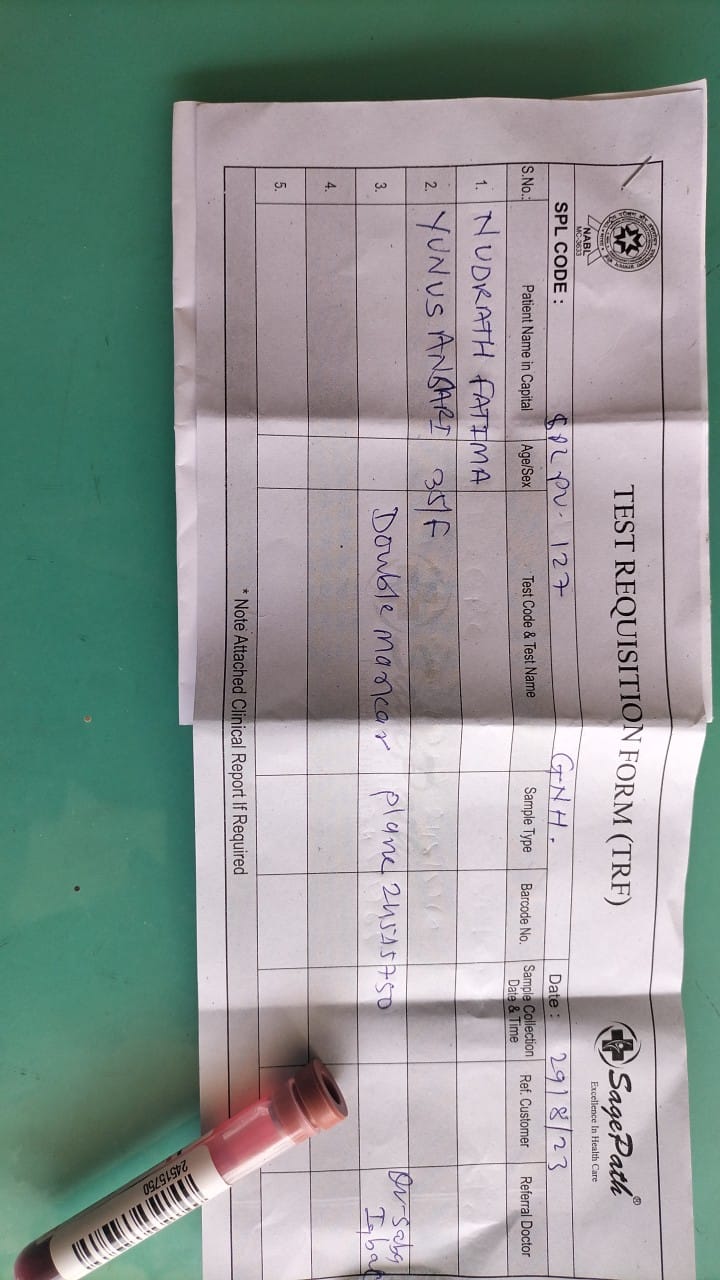 TEST REQUISITION FORM (TRF)
NABL
MC-3633
SagePath®
Excellence In Health Care
SPL CODE : SPL PV- 127 GNH. Date : 29/8/23
S.No.: Patient Name in Capital Age/Sex Test Code & Test Name Sample Type Barcode No. Sample Collection Date & Time Ref. Customer Referral Doctor
1. NUDRATH FATIMA
2. YUNUS ANSARI 35/F
3. Double marker plane 24515750 Dr-Saba
Iqbal
4.
5.
* Note Attached Clinical Report If Required
24515750